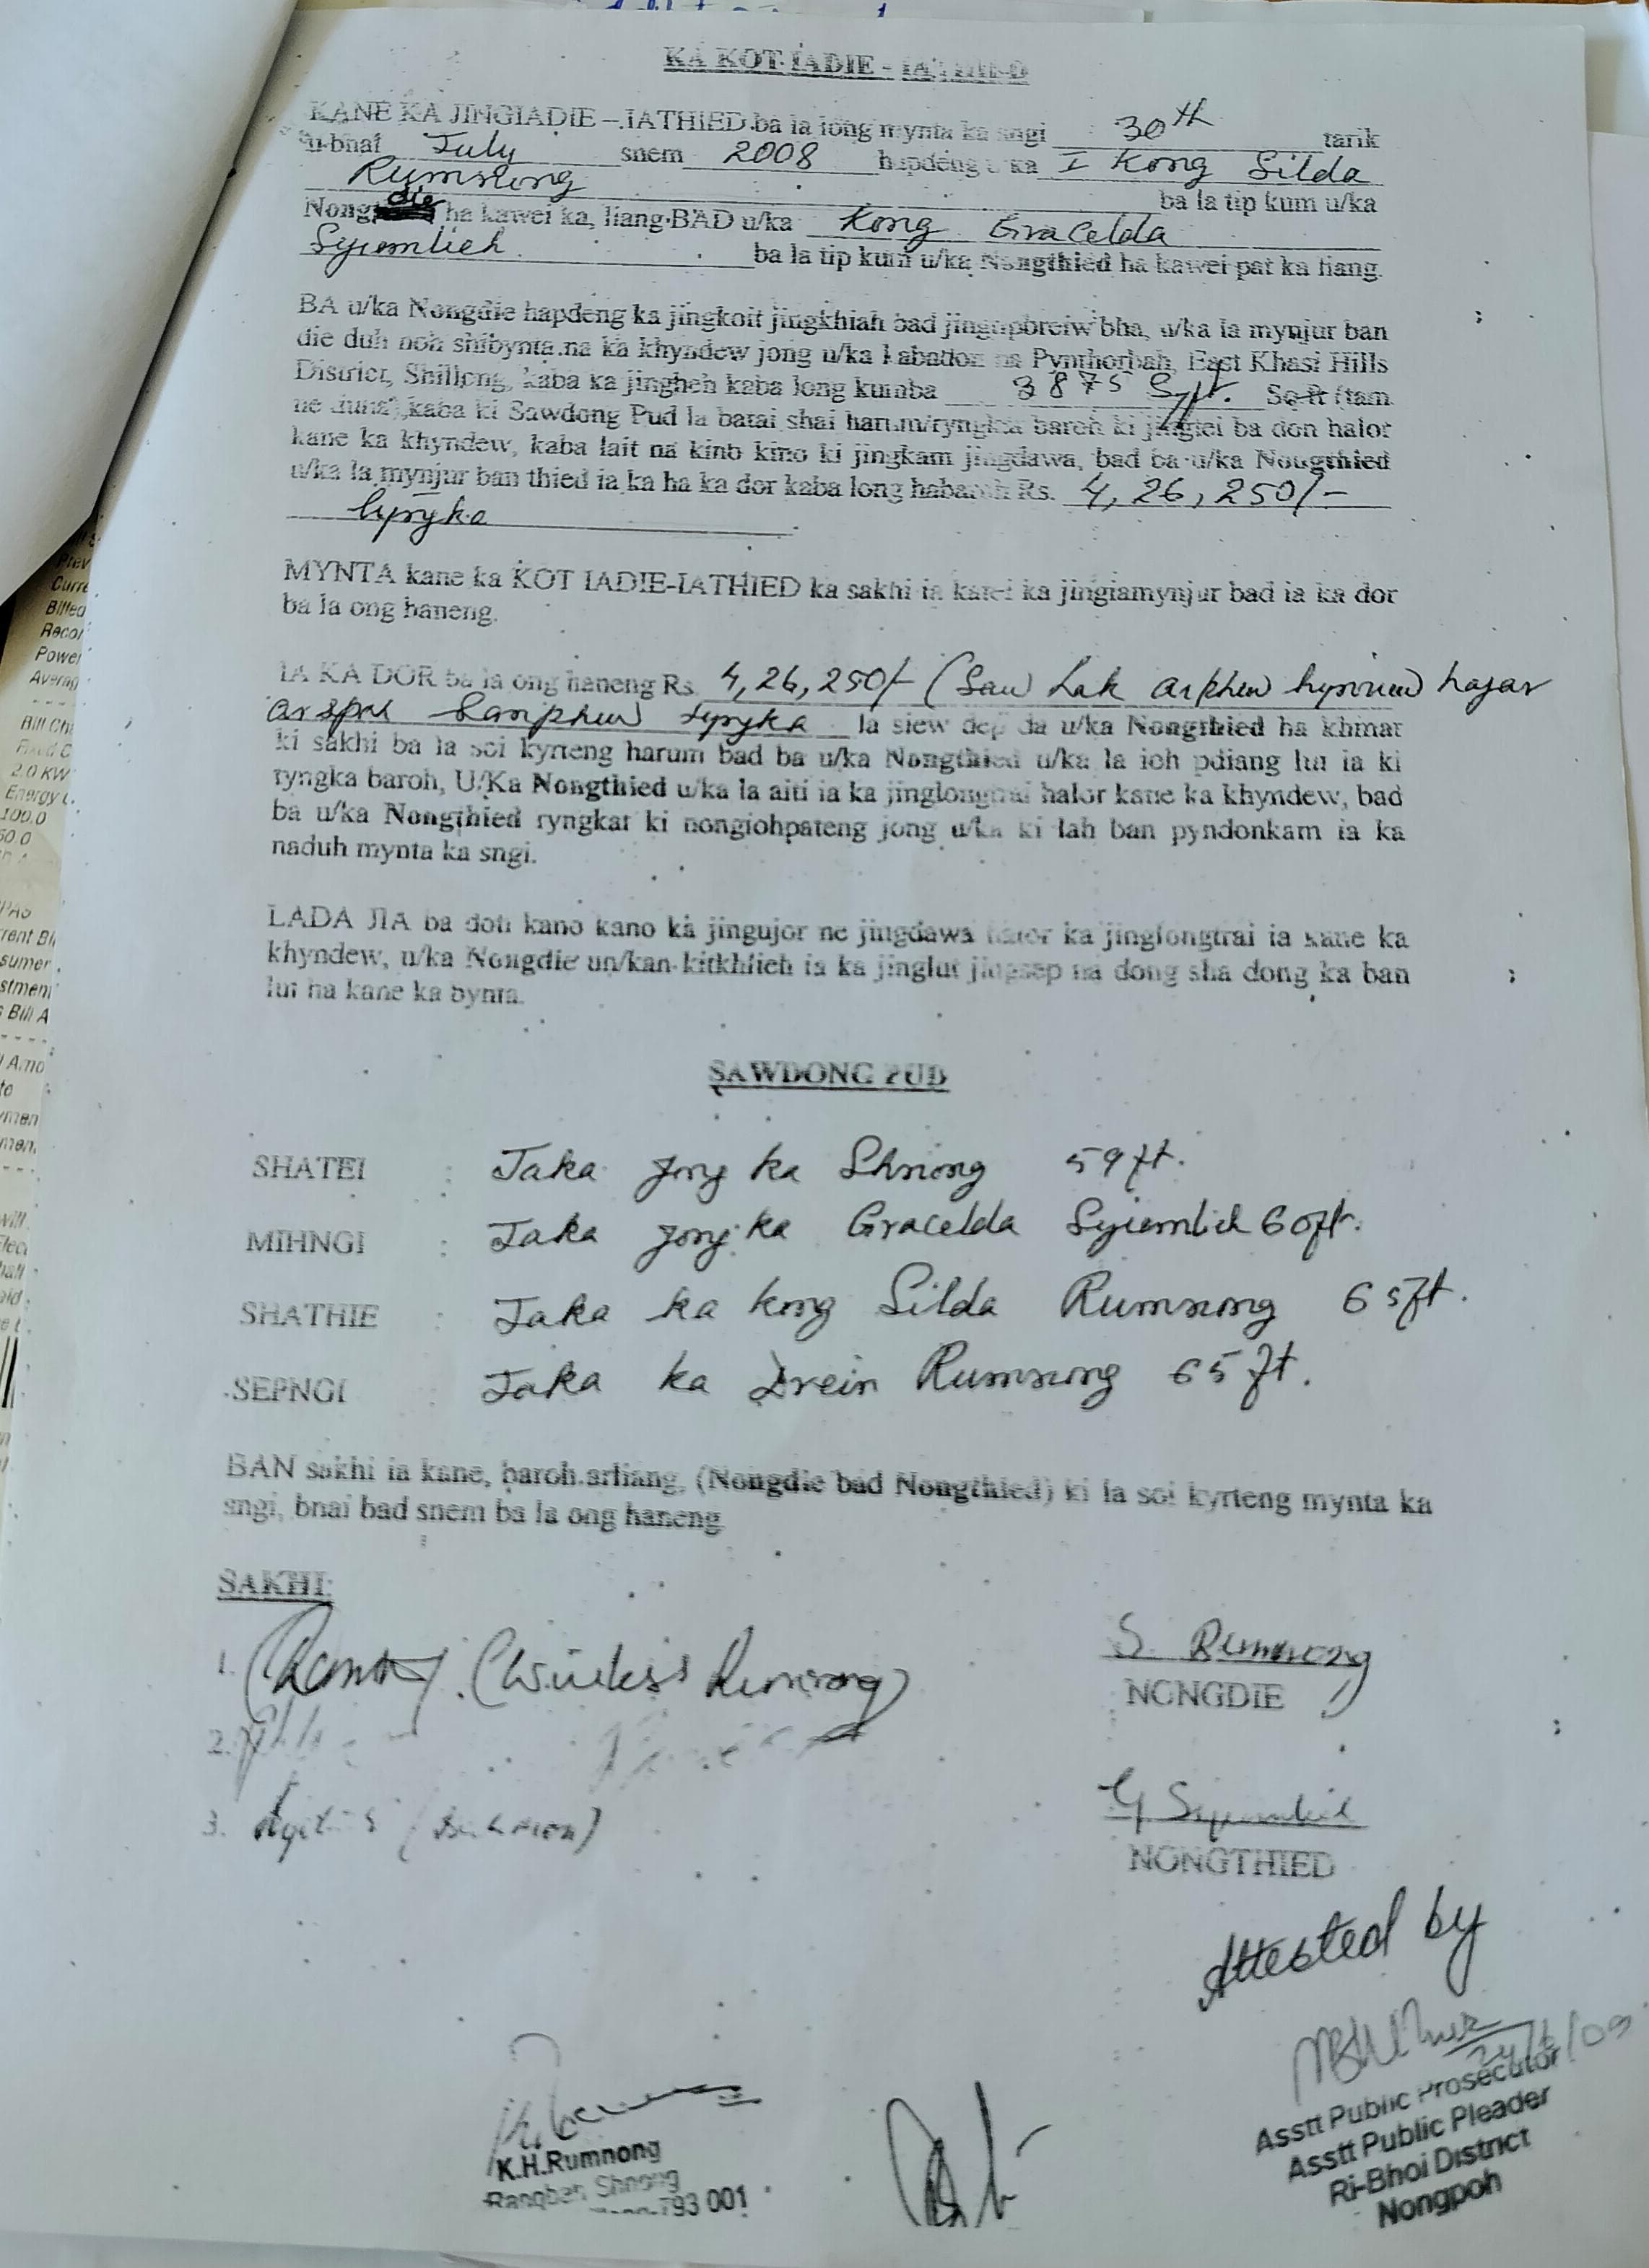 KA KOT IADIE - IATHIED
KANE KA JINGIADIE – IATHIED ba la long mynta ka sngi 30th tarik
u bnai July snem 2008 hapdeng u/ka I Kong Silda
Rumnong ba la tip kum u/ka
Nongdie ha kawei ka liang BAD u/ka Kong Gracelda
Syiemlieh ba la tip kum u/ka Nongthied ha kawei pat ka liang.
BA u/ka Nongdie hapdeng ka jingkoit jingkhiah bad jingipbreiw bha, u/ka la mynjur ban
die duh noh shibynta na ka khyndew jong u/ka kabadon na Pynthorbah, East Khasi Hills
District, Shillong, kaba ka jingheh kaba long kumba 3875 Sqft. Sq ft (tam
ne duna) kaba ki Sawdong Pud la batai shai harum/ryngkat baroh ki jingtei ba don halor
kane ka khyndew, kaba lait na kino kino ki jingkam jingdawa, bad ba u/ka Nongthied
u/ka la mynjur ban thied ia ka ha ka dor kaba long habaroh Rs. 4,26,250/-
tyngka
MYNTA kane ka KOT IADIE-IATHIED ka sakhi ia katei ka jingiamynjur bad ia ka dor
ba la ong haneng.
IA KA DOR ba la ong haneng Rs. 4,26,250/- (Saw lak arphew hynriew hajar
arspah sanphew tyngka la siew dep da u/ka Nongthied ha khmat
ki sakhi ba la soi kyrteng harum bad ba u/ka Nongthied u/ka la ioh pdiang lut ia ki
tyngka baroh, U/Ka Nongthied u/ka la aiti ia ka jinglongtrai halor kane ka khyndew, bad
ba u/ka Nongthied ryngkat ki nongiohpateng jong u/ka ki lah ban pyndonkam ia ka
naduh mynta ka sngi.
LADA JIA ba don kano kano ka jingujor ne jingdawa halor ka jinglongtrai ia kane ka
khyndew, u/ka Nongdie un/kan kitkhlieh ia ka jinglut jingsep na dong sha dong ka ban
lut ha kane ka bynta.
SAWDONG PUD
SHATEI : Jaka jong ka Shnong 59 ft.
MIHNGI : Jaka jong ka Gracelda Syiemlieh 60ft.
SHATHIE : Jaka ka kong Silda Rumnong 65ft.
SEPNGI Jaka ka Drein Rumnong 65 ft.
BAN sakhi ia kane, baroh arliang, (Nongdie bad Nongthied) ki la soi kyrteng mynta ka
sngi, bnai bad snem ba la ong haneng.
SAKHI:
1. (Rumnong)
S. Rumnong
NONGDIE
2.
3.
G Syiemlieh
NONGTHIED
Attested by
24/6/09
Asstt Public Prosecutor
Asstt Public Pleader
Ri-Bhoi District
Nongpoh
K.H.Rumnong
Rangbah Shnong
793 001